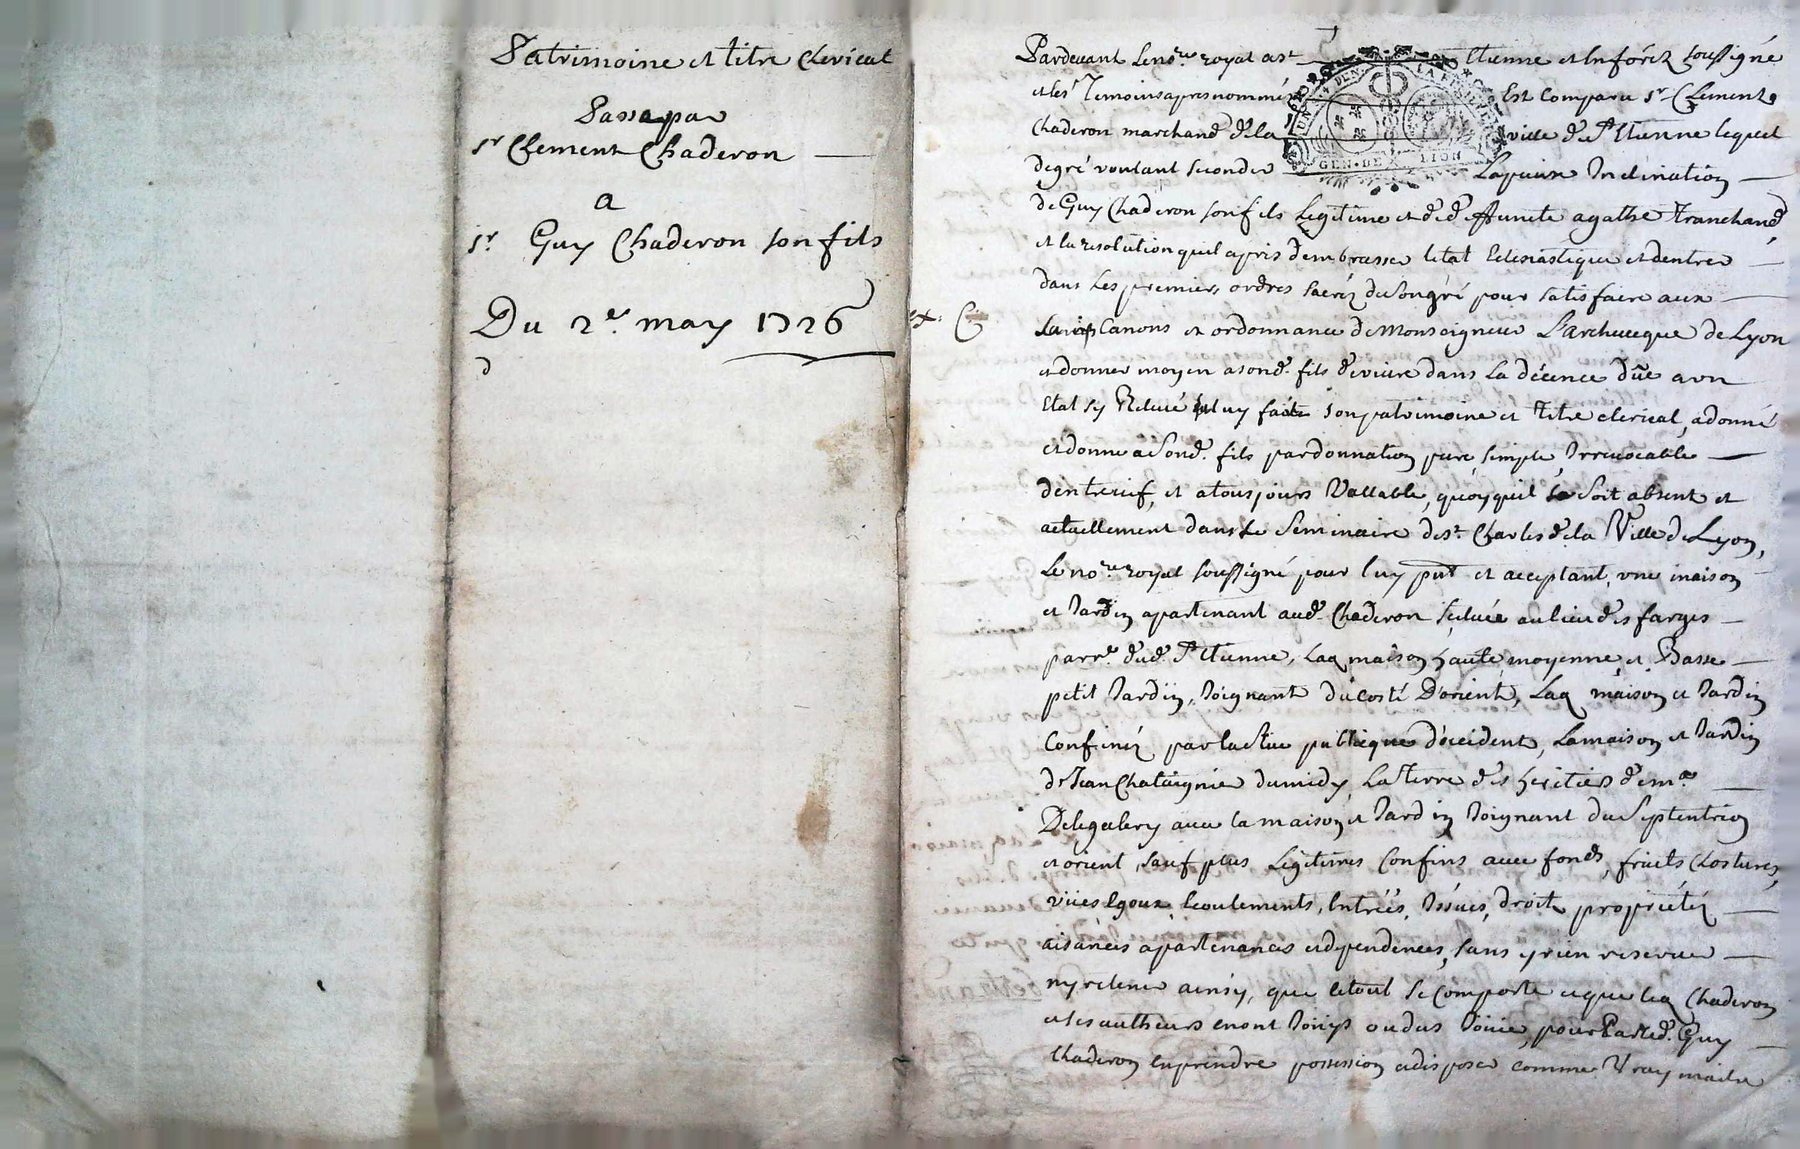 Patrimoine et titre Clerical
Passé par
Sr Clement Chaderon
a
Sr. Guy Chaderon son fils
Du 2e. may 1726
Pardevant le nore royal a St Etienne et en foréz soussigné
et les Temoins apres nommés Est comparu Sr Clement
Chaderon marchand de la ville de St Etienne lequel
de gré voulant seconder la pieuse Inclination
de Guy Chaderon son fils Legitime et de d. agathe Tranchand,
et la resolution quil a pris d'embrasser letat Eclesiastique et dentrer
dans les premiers ordres sacréz du son gré pour satisfaire aux
Canons et ordonnance de Monseigneur L'archeveque de Lyon
et donner moyen a sond. fils de vivre dans la décence düe a un
Etat sy Relevé luy faite son patrimoine et titre clerical, a donné
et donne a sond. fils par donnation pure, simple, Irrevocable
d'entre vif, et a tousjours Vallable, quoy quil soit absent et
actuellement dans le Seminaire de St. Charles de la Ville de Lyon,
Le nore royal soussigné pour luy pnt et acceptant, une maison
et Jardin apartenant aud. Chaderon scituée au lieu des farges
parre. dud. St Etienne, Laq maison haute moyenne et Basse
petit Jardin, Joignant du costé D'orient, Laq maison et Jardin
Confinéz par la Rue publique d'occident, La maison et Jardin
de Jean du midy, La Terre des heritiers de me
avec la maison et Jardin Joignant du Septentrion
et orient, sauf plus Legitimes Confins avec fonds, fruits Clostures,
vües Egoux, Ecoulements, Entrées, Issües, droits propriétéz
aisances apartenances et dependences, sans y rien reserver
ny retenir ainsy, que letout se Comporte et que leq Chaderon
et ses autheurs en ont Joüys ou dus Joüir, pour Parled. Guy
Chaderon en prendre possession et disposer comme Vray maitre
UN DEN. LA FEUILLE
GEN. DE LION